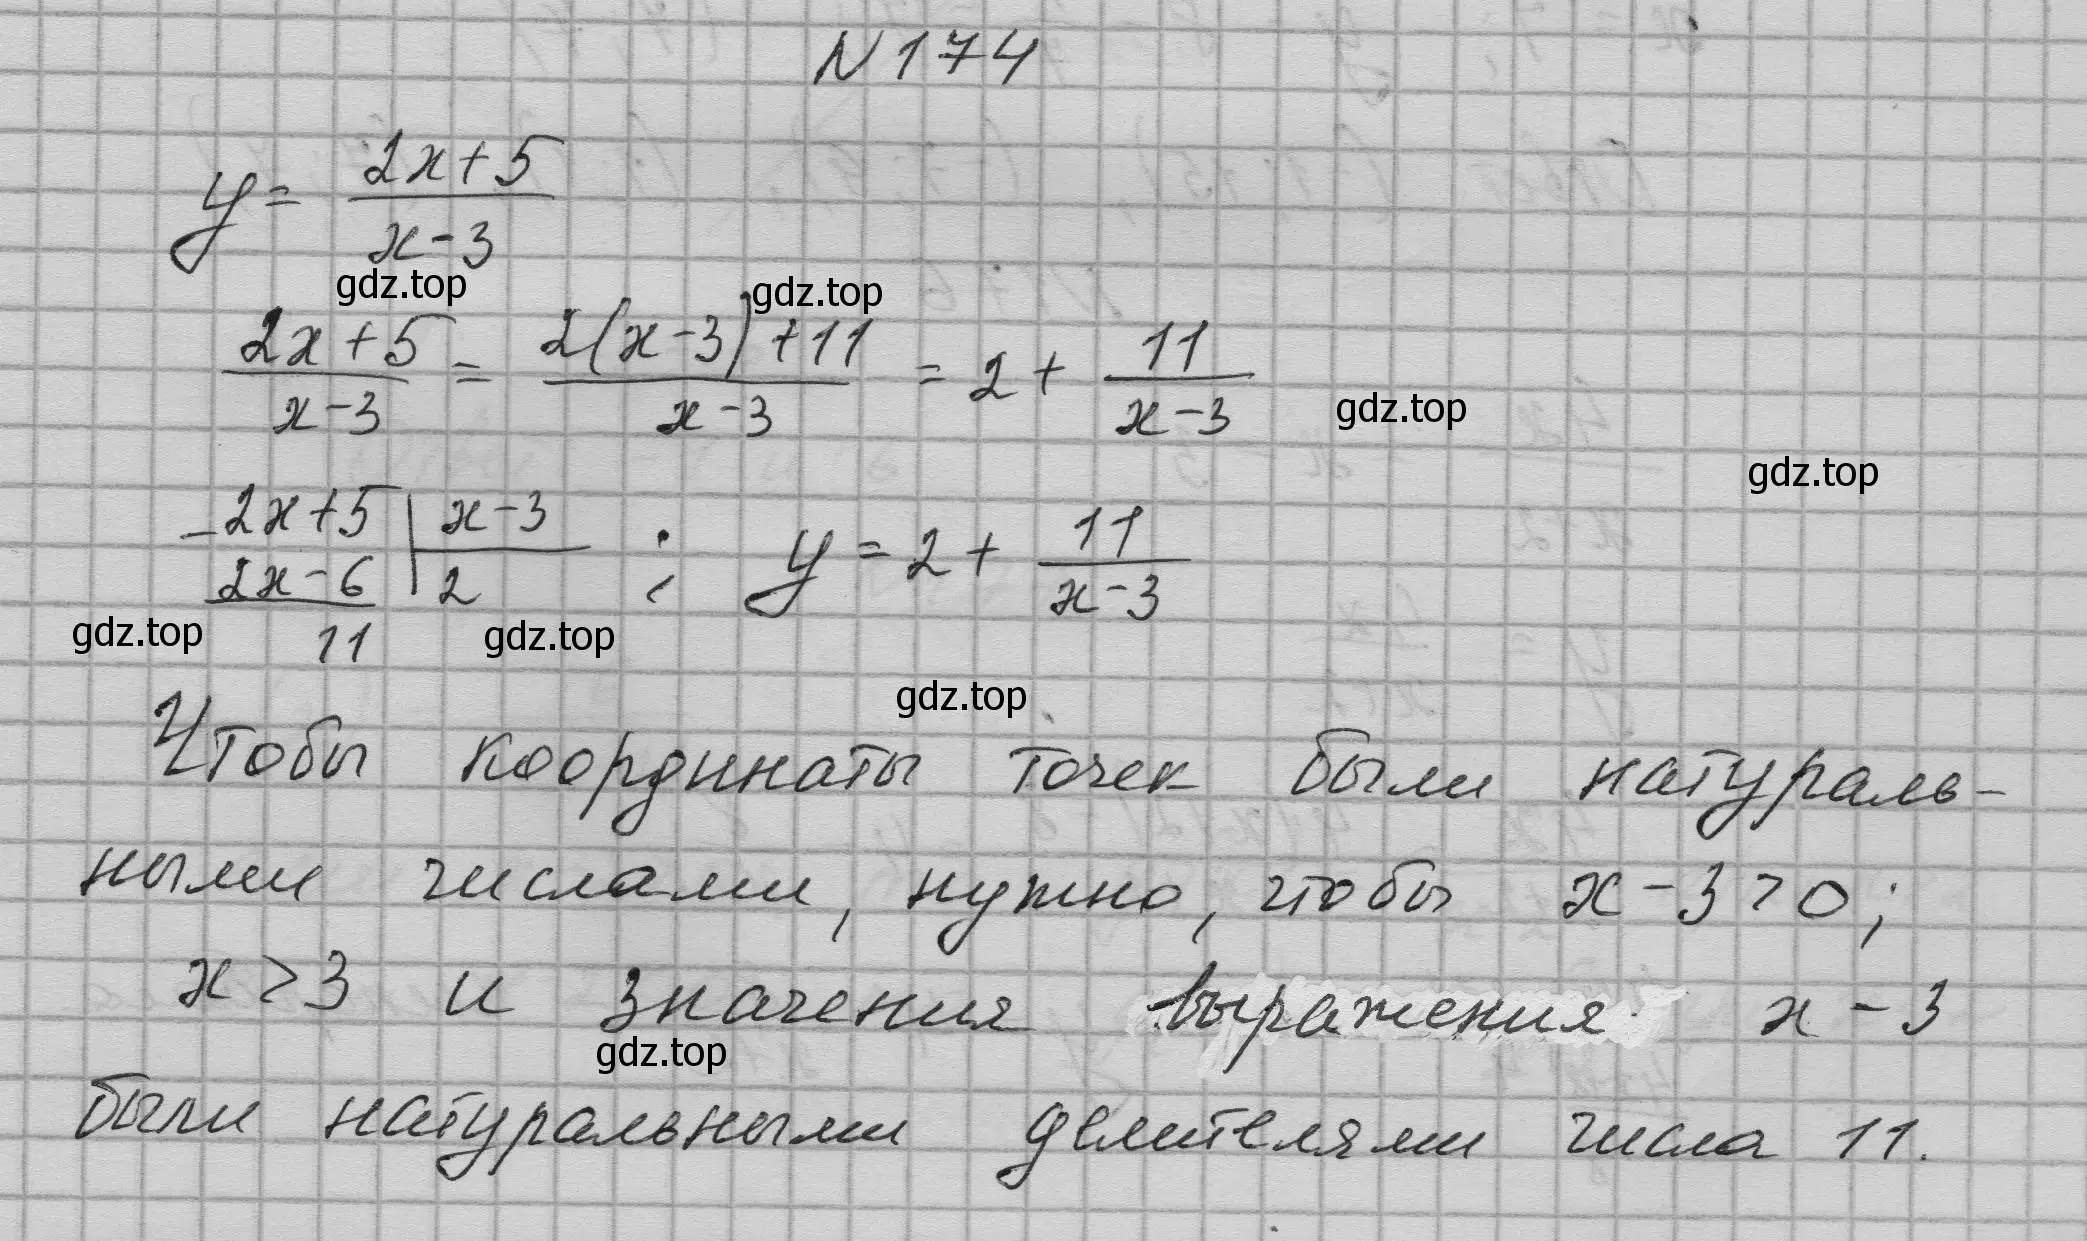 N 174
y = (2x+5)/(x-3)
gdz.top gdz.top
(2x+5)/(x-3) = (2(x-3)+11)/(x-3) = 2 + 11/(x-3)
gdz.top
gdz.top
-2x+5 | x-3
2x-6 | 2 ; y = 2 + 11/(x-3)
11
gdz.top gdz.top
gdz.top
Чтобы координаты точек были натураль-
ными числами, нужно, чтобы x-3>0;
x>3 и значения выражения x-3
gdz.top
были натуральными делителями числа 11.